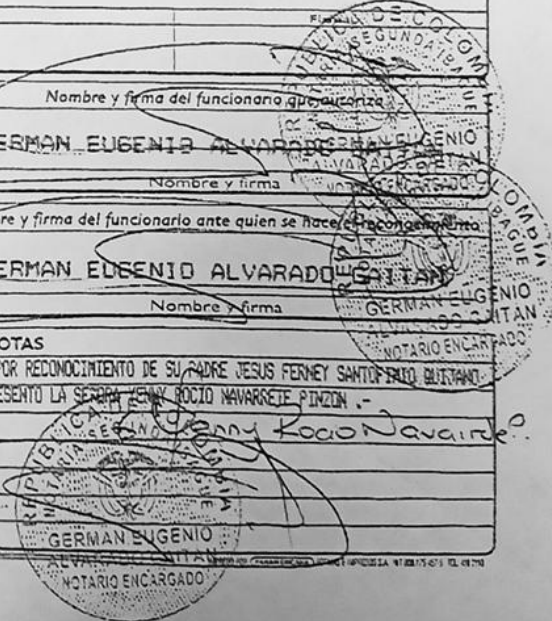 Nombre y firma del funcionario que autoriza
ERMAN EUGENIO ALVARADO
Nombre y firma
re y firma del funcionario ante quien se hace el reconocimiento
ERMAN EUGENIO ALVARADO GAITAN
Nombre y firma
OTAS
POR RECONOCIMIENTO DE SU PADRE JESUS FERNEY SANTOFIMIO QUITANO
ESENTO LA SEÑORA YENNY ROCIO NAVARRETE PINZON .-
Yenny Rocio Navarrete P.
REPUBLICA DE COLOMBIA
NOTARIA SEGUNDA IBAGUE
GERMAN EUGENIO
ALVARADO GAITAN
NOTARIO ENCARGADO
REPUBLICA DE COLOMBIA
IBAGUE
GERMAN EUGENIO
ALVARADO GAITAN
NOTARIO ENCARGADO
REPUBLICA DE COLOMBIA
NOTARIA SEGUNDA IBAGUE
GERMAN EUGENIO
ALVARADO GAITAN
NOTARIO ENCARGADO